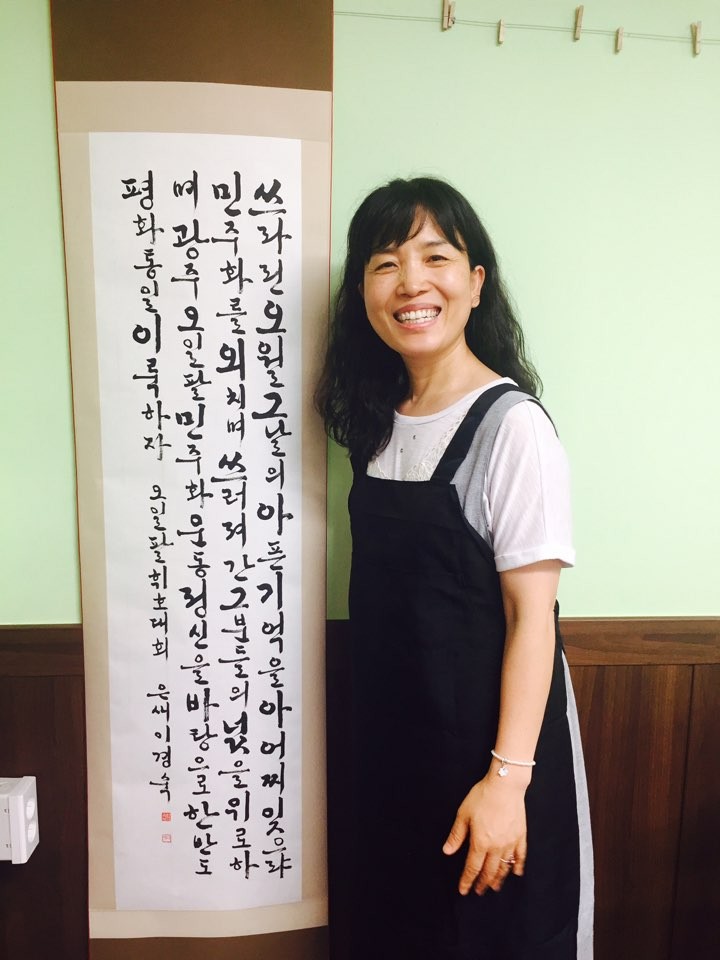 쓰라린오월그날의아픈기억을아어찌잊으랴
민주화를외치며쓰러져간그분들의넋을위로하
며광주오일팔민주화운동정신을바탕으로한반도
평화통일이룩하자 오일팔휘호대회 은새이경숙